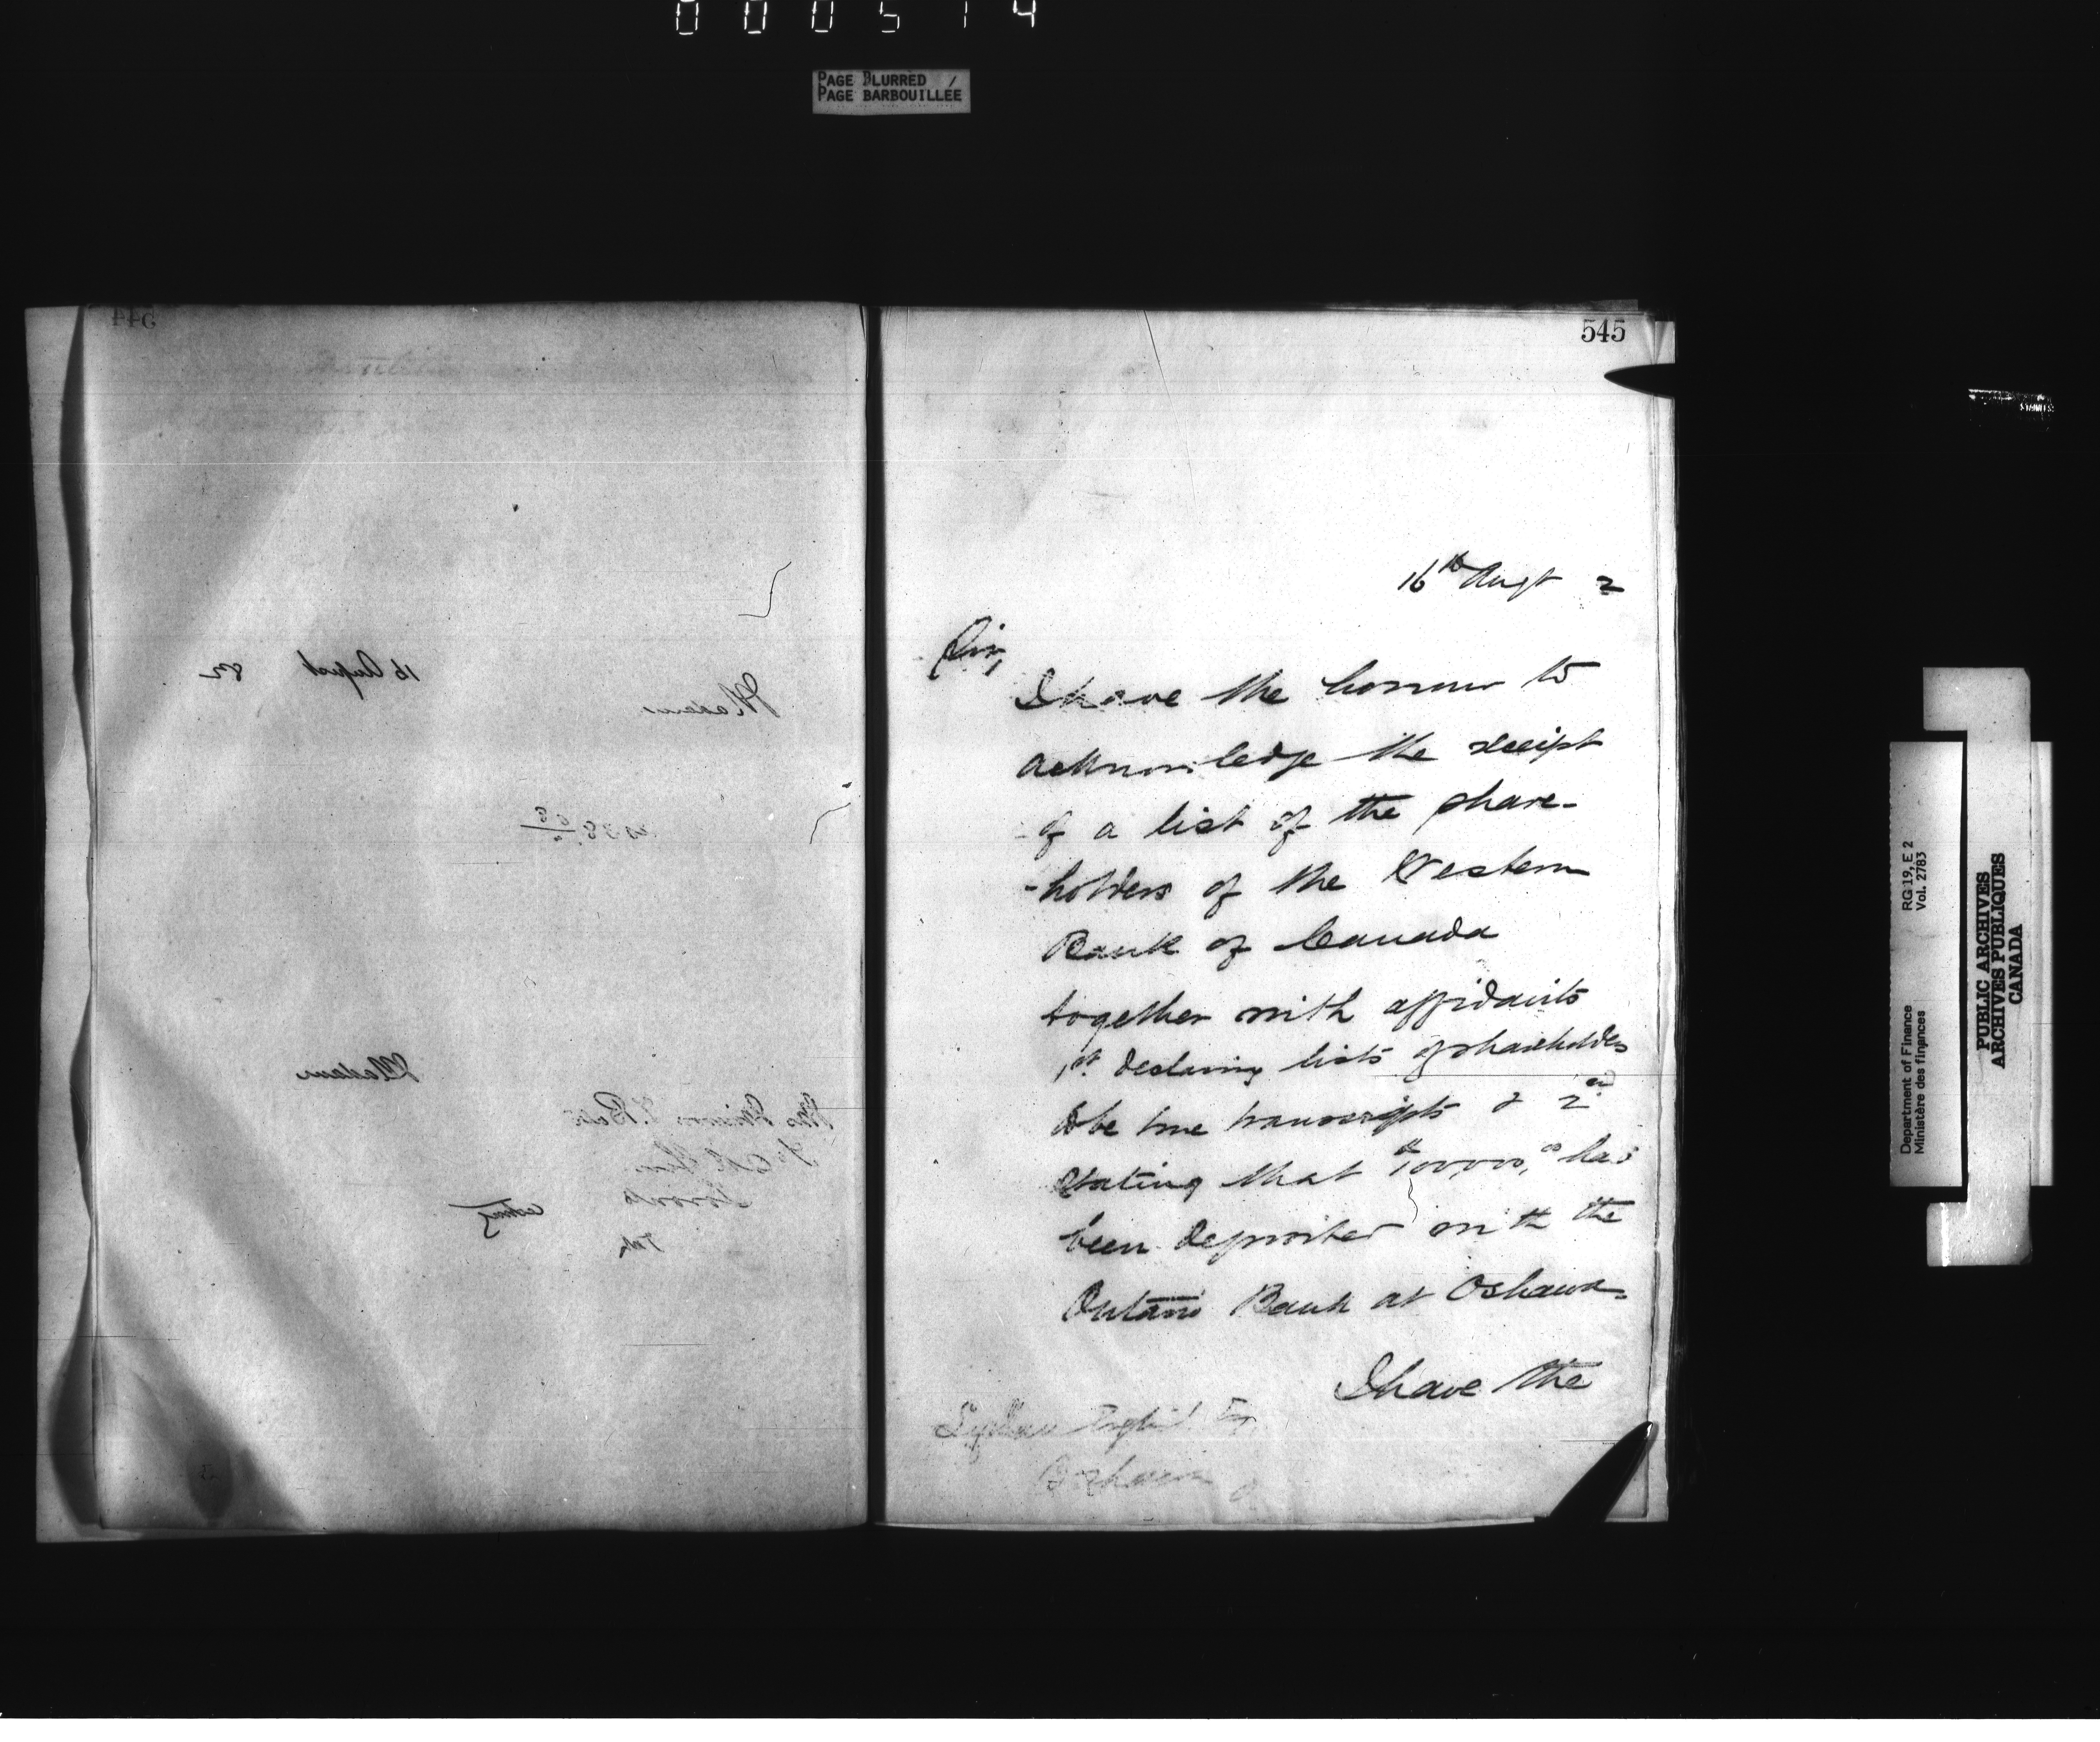 000514
PAGE BLURRED /
PAGE BARBOUILLÉE
544
16 August 82
Madam
Madam
Toronto
545
16th Augt 2
Sir,
I have the honour to
acknowledge the receipt
of a list of the share-
-holders of the Western
Bank of Canada
together with affidavits
1st declaring lists of shareholders
to be true transcripts & 2nd
stating that $100,000.00 has
been deposited with the
Ontario Bank at Oshawa
I have the
Esq
Oshawa
Department of Finance RG 19, E 2
Ministère des finances Vol. 2783
PUBLIC ARCHIVES
ARCHIVES PUBLIQUES
CANADA